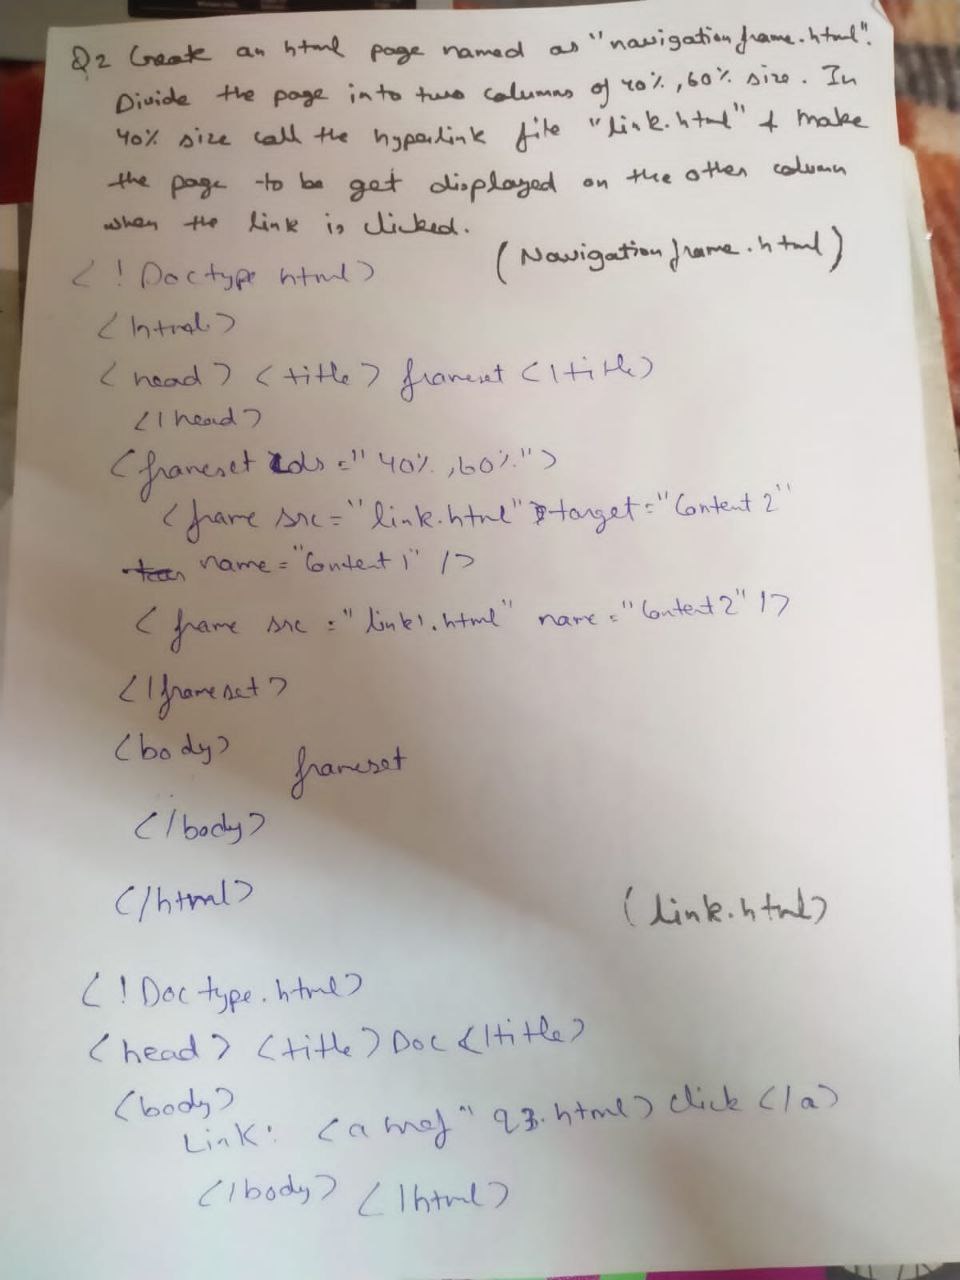 Q2 Create an html page named as "navigation frame.html".
Divide the page into two columns of 40%, 60% size. In
40% size call the hyperlink file "link.html" & make
the page to be get displayed on the other column
when the link is clicked.
(Navigation frame.html)
<! Doctype html>
<html>
<head> <title> frameset </title>
</head>
<frameset cols ="40%, 60%">
<frame src = "link.html" target = "Content 2"
name = "Content 1" />
<frame src = "link1.html" name = "Content 2" />
</frameset>
<body> frameset
</body>
</html>
(link.html)
<! Doc type. html>
<head> <title> Doc </title>
<body>
Link: <a href " q3.html> click </a>
</body> </html>